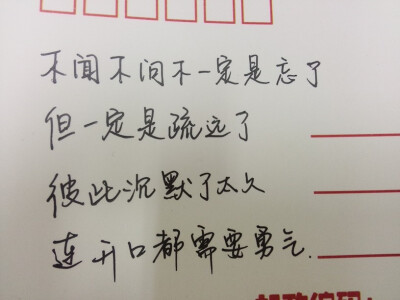 不闻不问不一定是忘了
但一定是疏远了
彼此沉默了太久
连开口都需要勇气.